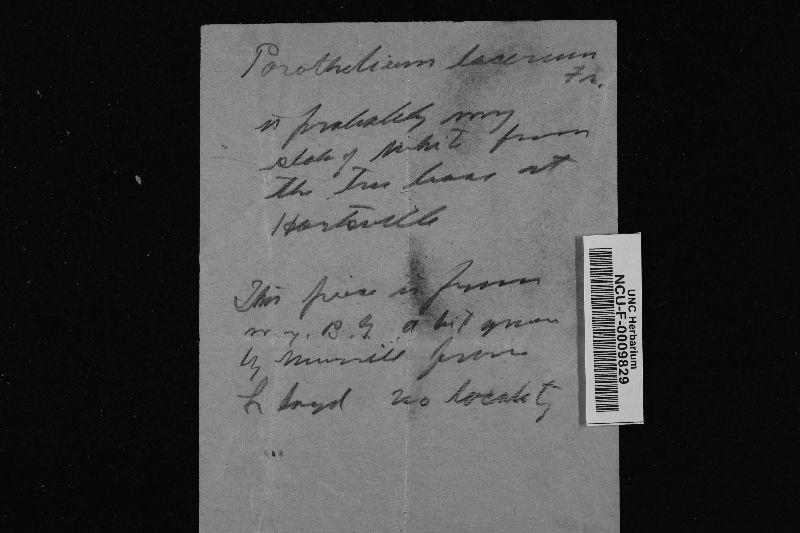 Porothelium lacerum
Fr.
is probably my
slab of white from
the tree base at
Hartsville
This piece is from
N.Y. B.G. a bit given
by Murrill from
Lloyd no locality
UNC Herbarium
NCU-F-0009829